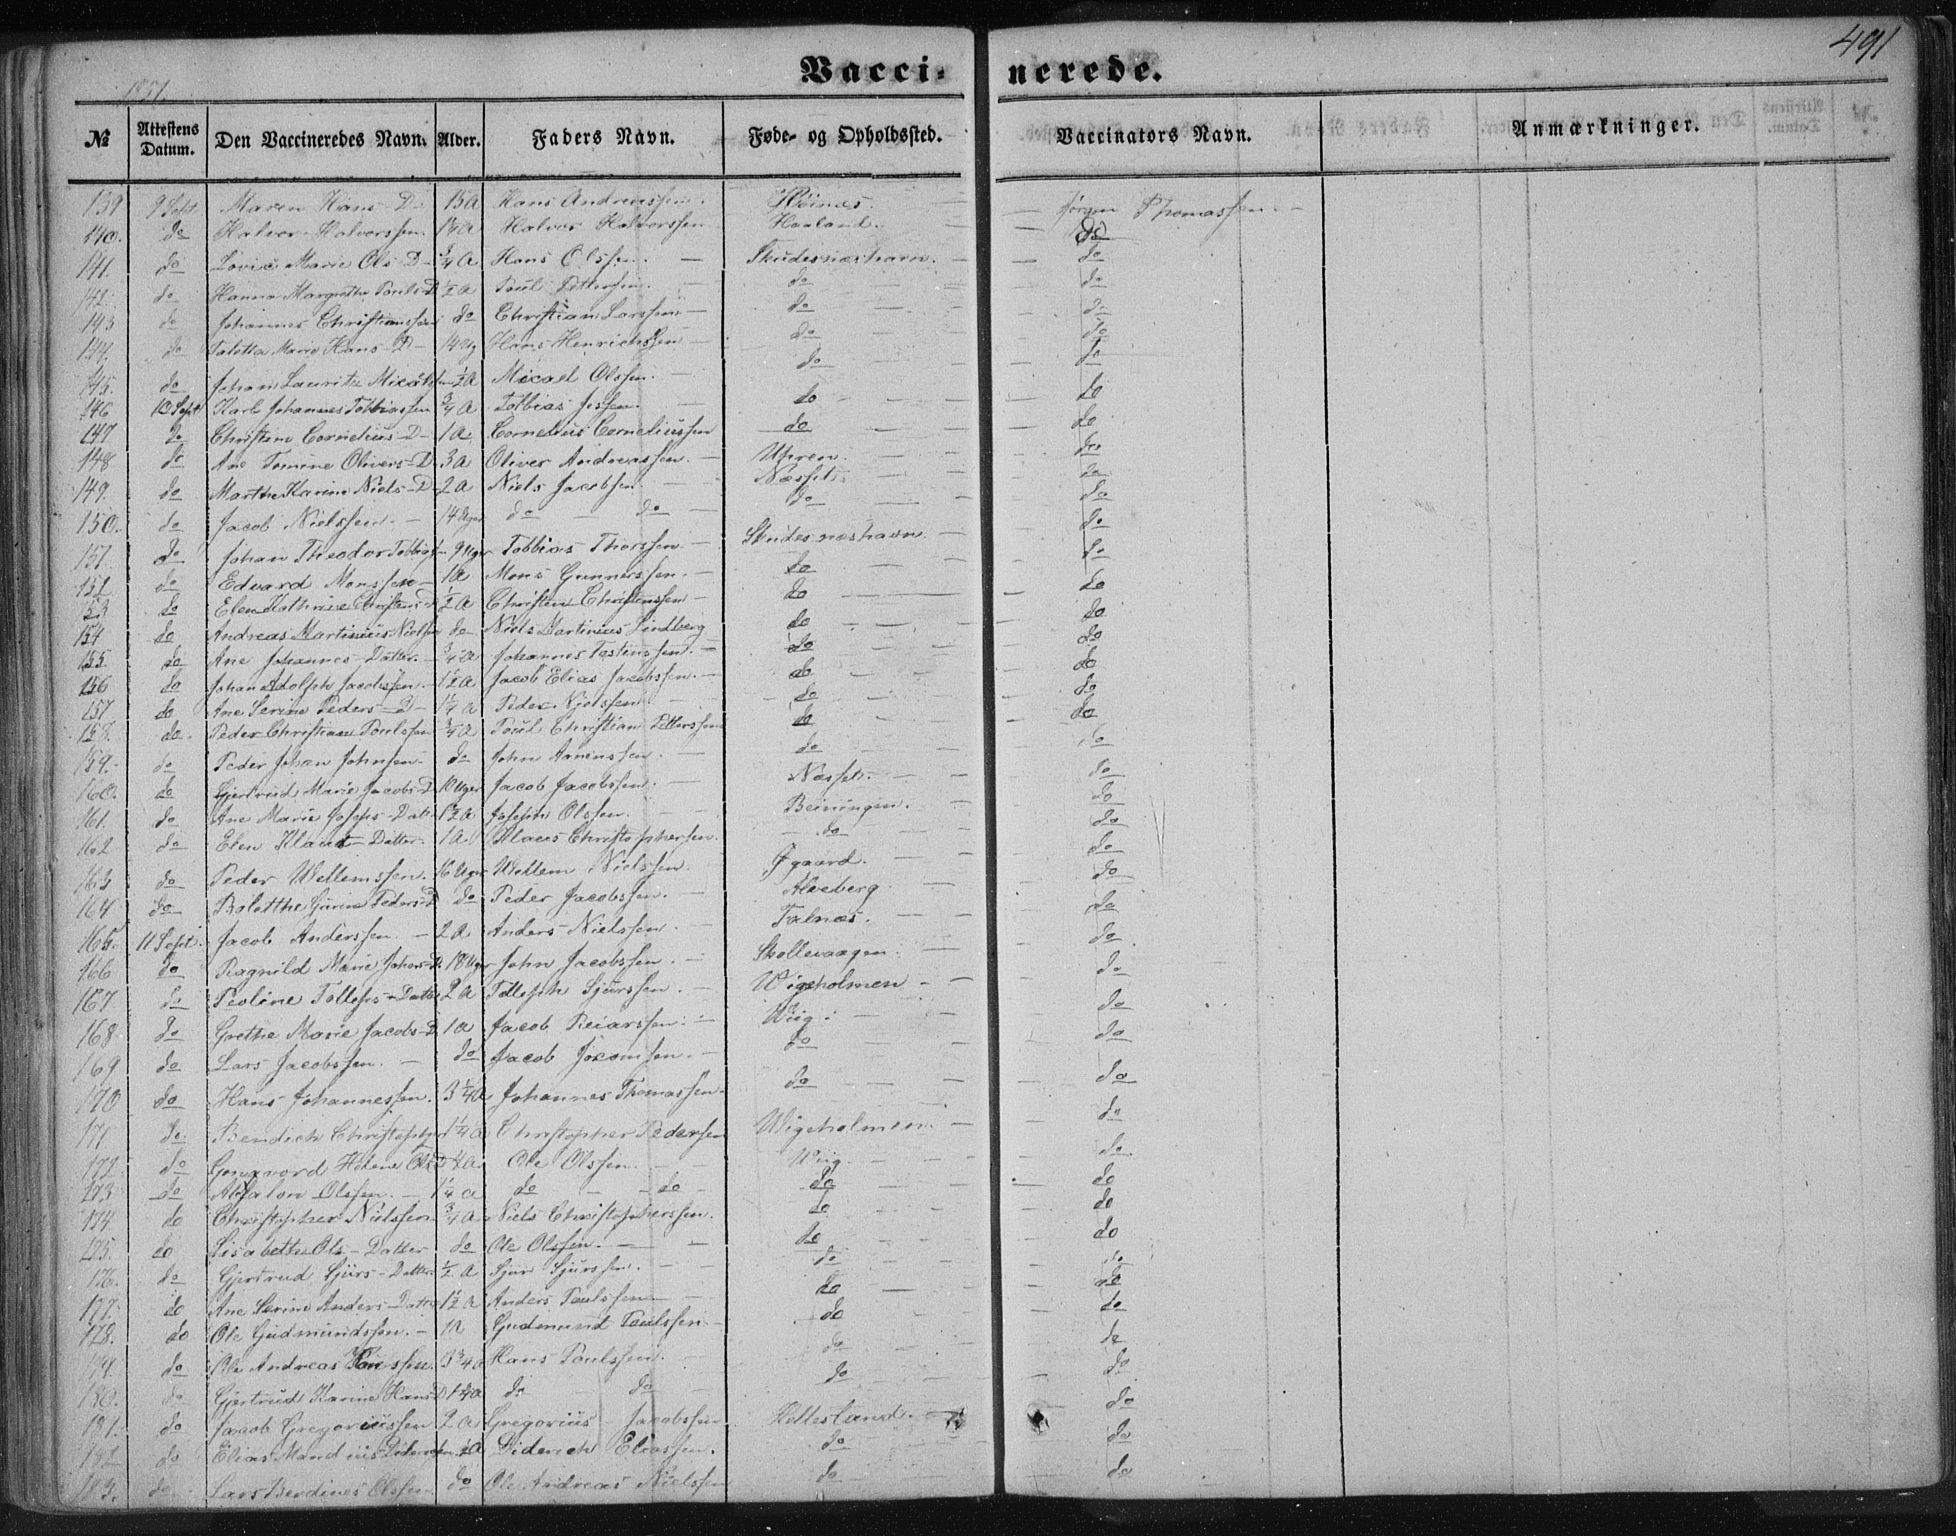 491
Vacci- nerede.
1851.
№ Attestens Datum. Den Vaccineredes Navn. Alder. Faders Navn. Føde- og Opholdssted. Vaccinators Navn. Anmærkninger.
139 9 Sept. Maren Hans D. 15 A Hans Andreassen. — Jørgen Thomassen
140. do Halvor Halvorssen. Halvor Halvorssen Haaland. do
141. do Lovise Marie Ols D 3/4 A Hans Olssen. Skudesnæshavn. do
142. do Hanna Margrethe Pouls D 1/2 A Poul Pettersen. do do
143 do Johannes Christianssen do Christian Larssen do do
144. do Taletta Marie Hans D 14 Ug Hans Henrichssen do do
145. do Johan Lauritz Micalssen 1/2 A Micael Olssen. do do
146 10 Sept Karl Johannes Tobbiassen 3/4 A Tobbias Jossen. do do
147 do Christine Cornelius D 1 A Cornelius Corneliussen do do
148 do Ane Tomine Olivers D. 3 A Oliver Andreassen. do
149. do Marthe Karine Niels D 2 A Niels Jacobsen Næsset. do
150. do Jacob Nielssen. 14 Uger do do do do
151. do Johan Theodor Tobbias 9 Uger Tobbias Thorssen. Skudesnæshavn do
152 do Edvard Monssen 1 A Mons Gunnerssen. do do
153 do Elen Kathrine Christens D 1/2 A Christen Christenssen do do
154 do Andreas Martinius Nielsen do Niels Martinius Lindberg do do
155. do Ane Johannes Datter. 3/4 A Johannes Tostenssen. do do
156 do Johan Adolph Jacobssen. 1 1/2 A Jacob Elias Jacobssen. do do
157 do Ane Serine Peders D 1 1/4 A Peder Nielssen do do
158. do Peder Christian Poulssen 3/4 A Poul Christian Pettersen do do
159. do Peder Johan Johnsen do John Aanenssen. do do
160. do Gjertrud Marie Jacobs D 10 Uger Jacob Jacobssen. Næsset. do
161. do Ane Marie Joseps Datt. 1 1/2 A Joseph Olssen. Beiningen. do
162 do Elen Klaus Datter. 1 A Klaus Christophersen. do do
163 do Peder Wellemssen. 16 Uger Wellem Nielssen. Øgaard. do
164 do Bolethe Gurine Peders D do Peder Jacobssen. Alveberg do
165. 11 Sept. Jacob Anderssen. 2 A Anders Nielssen Falnæs. do
166 do Ragnild Marie Johns D. 18 Uger John Jacobssen. Skollevaagen do
167 do Peoline Tolleps Datter 2 A Tolleph Sjurssen. Wigeholmen do
168 do Grethe Marie Jacobs D 1 A Jacob Reiarssen. Wiig. do
169 do Lars Jacobssen. do Jacob Jocomsen. do
170 do Hans Johannessen. 3 1/4 A Johannes Thomassen do do
171 do Bendich Christopher 1 1/4 A Christopher Pedersen Wigeholmen do
172 do Helene Ols D 1/2 A Ole Olssen. Wiig. do
173 do Absalon Olssen. 1 1/4 A do do do do
174. do Christopher Nielssen 3/4 A Niels Christopherssen. do do
175. do Lisabethe Ols Datter do Ole Olssen. do do
176. do Gjertrud Sjurs Datter 1/2 A Sjur Sjurssen. do do
177. do Ane Serine Anders Datter 1 1/2 A Anders Poulssen do do
178. do Ole Gudmundssen. 1 A Gudmund Poulssen do do
179. do Ole Andreas Hanssen. 3 3/4 A Hans Poulssen. do do
180. do Gjertrud Karine Hans D do do do do
181. do Jacob Gregoriussen 2 A Gregorius Jacobssen Hellesland do
182 do Elias Mandius Dideriksen 1/2 A Diderich Eliassen. do do
183. do Lars Berdines Olssen do Ole Andreas Nielssen do do